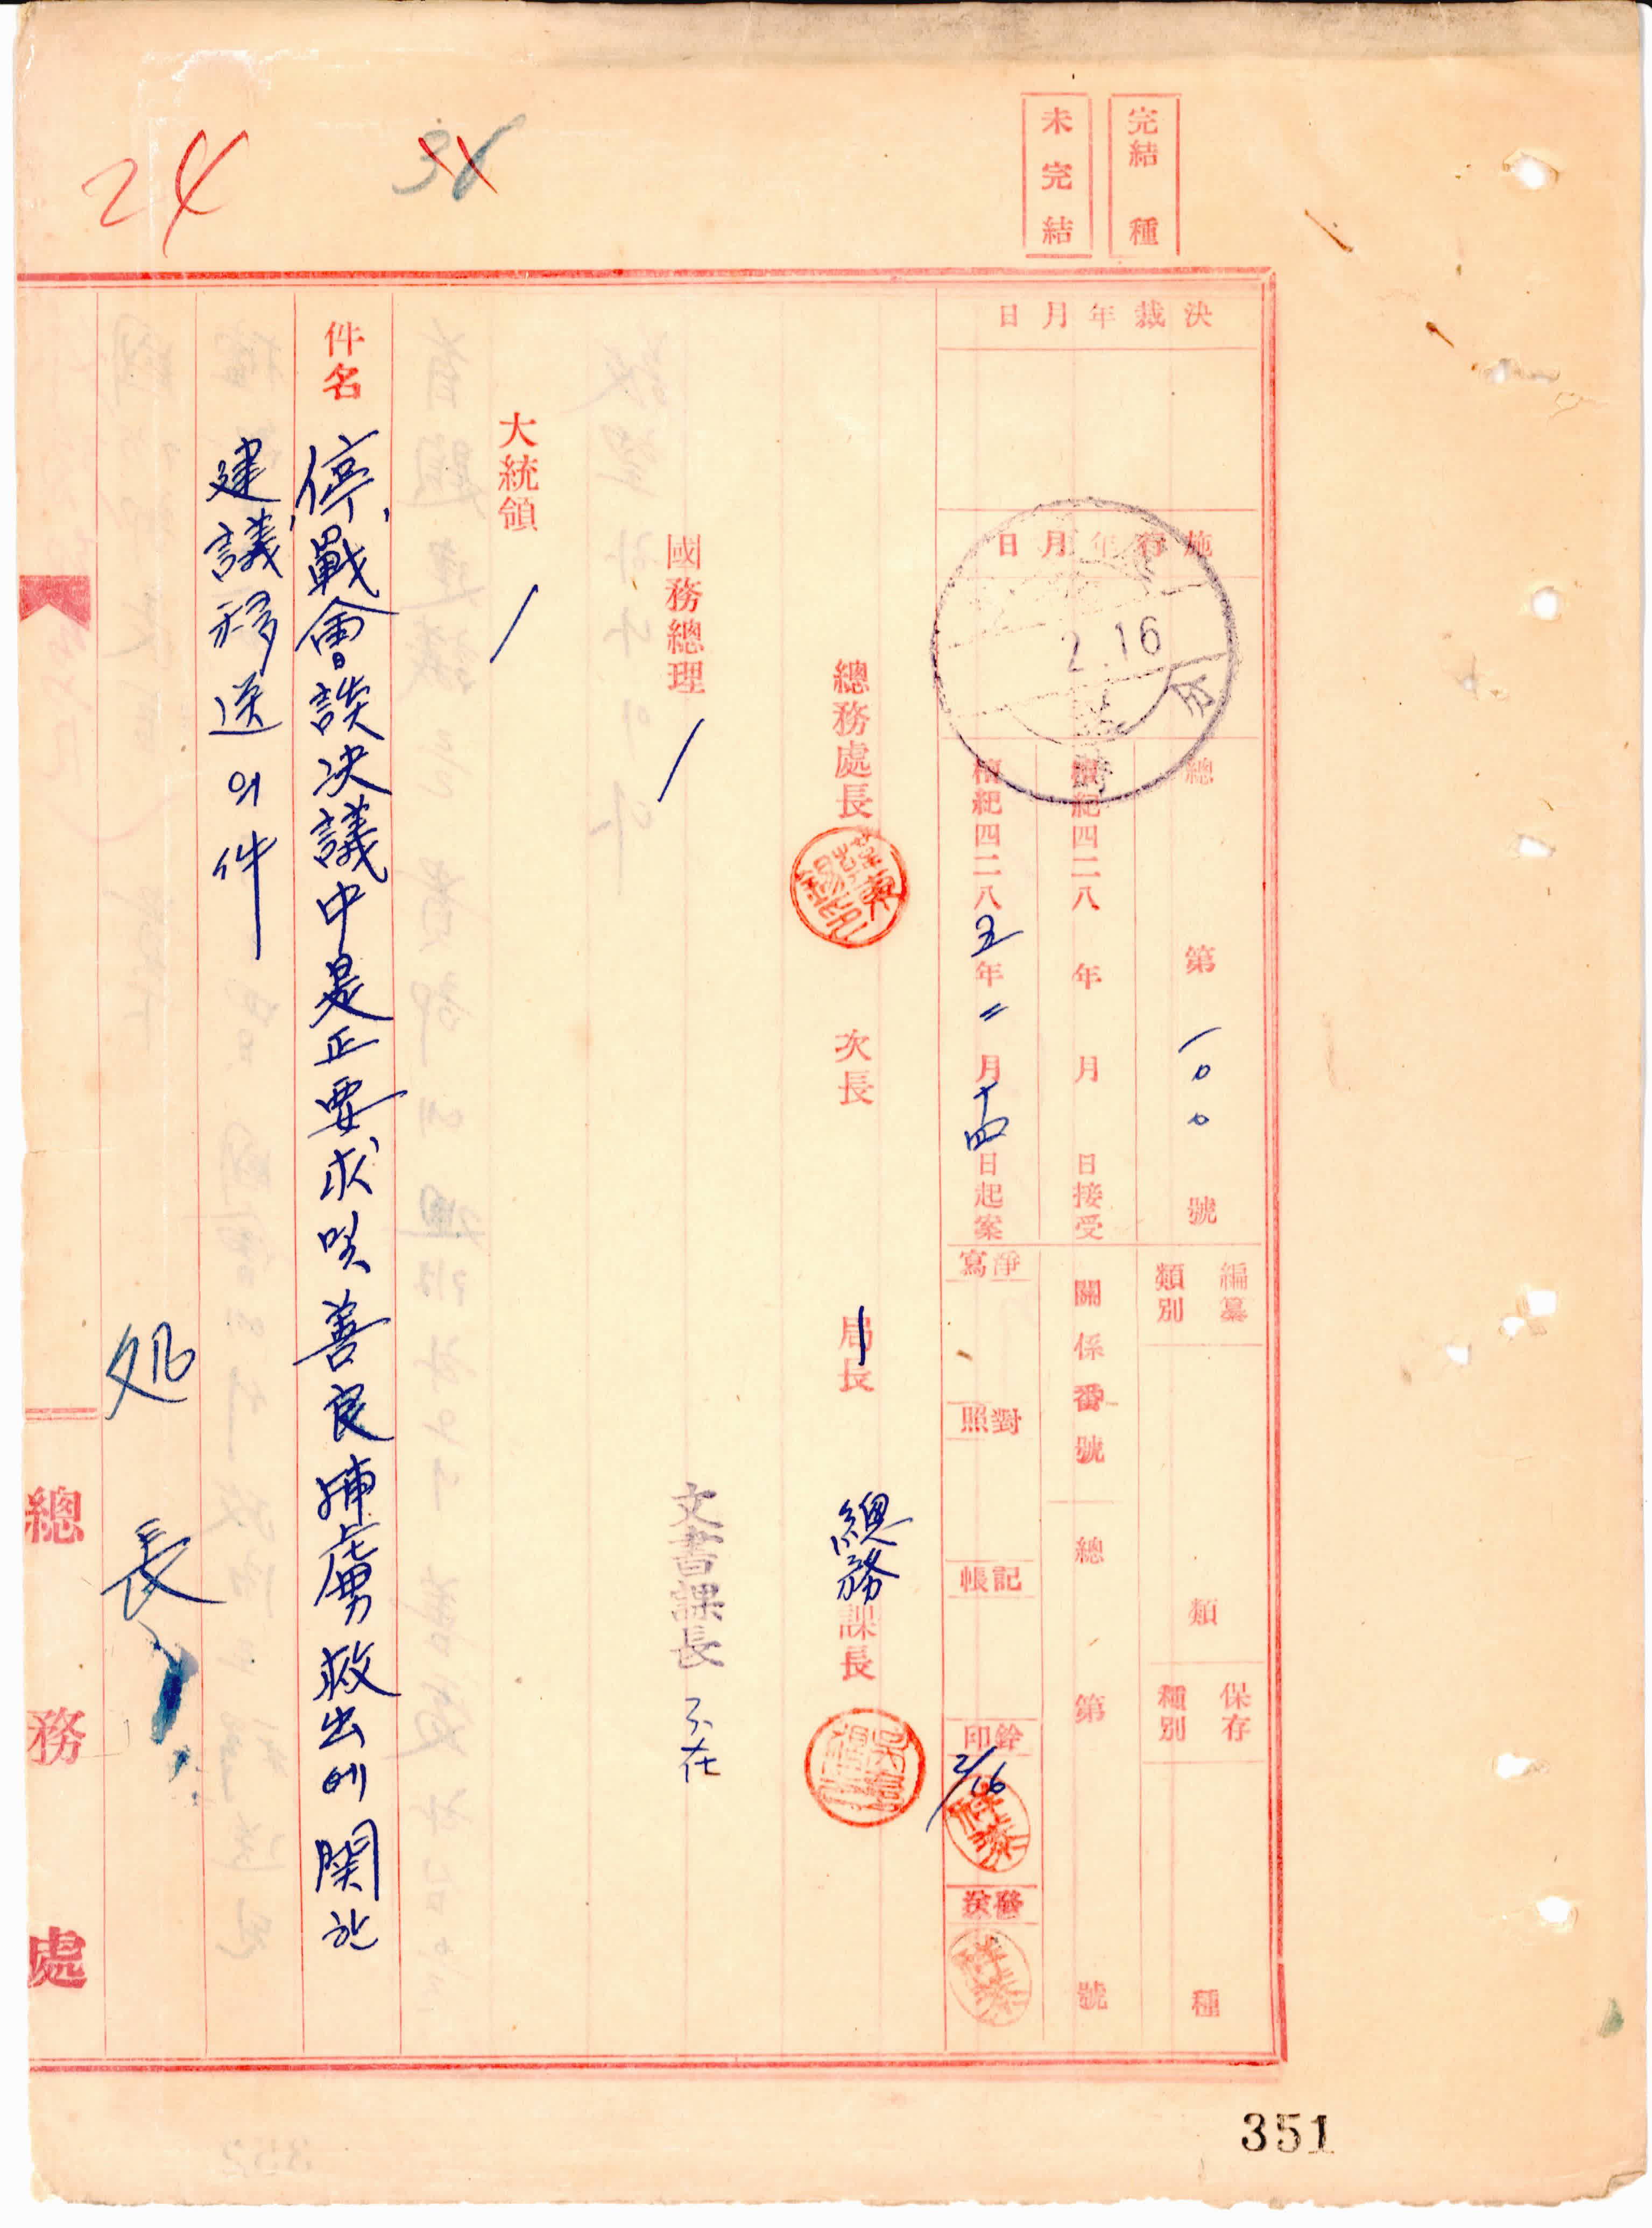 24
完結 種
未完結
決裁年月日
施行年月日
2.16
總 第一〇〇號
檀紀四二八 年 月 日接受
檀紀四二八五年二月十四日起案
編纂類別
類
保存種別
種
關係番號
總 第 號
淨寫
對照
記帳
鈐印
2/16
發送
總務處長
次長
局長
總務課長
國務總理
文書課長 不在
大統領
件名 停戰會談決議中是正要求 및 善良捕虜救出에 関한
建議移送의件
処長
總務處
351